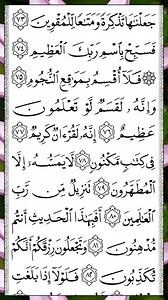 جَعَلْنَٰهَا تَذْكِرَةً وَمَتَٰعًا لِّلْمُقْوِينَ ٧٣
فَسَبِّحْ بِاسْمِ رَبِّكَ الْعَظِيمِ ٧٤
۞ فَلَآ أُقْسِمُ بِمَوَٰقِعِ النُّجُومِ ٧٥
وَإِنَّهُۥ لَقَسَمٌ لَّوْ تَعْلَمُونَ
عَظِيمٌ ٧٦ إِنَّهُۥ لَقُرْءَانٌ كَرِيمٌ ٧٧
فِى كِتَٰبٍ مَّكْنُونٍ ٧٨ لَّا يَمَسُّهُۥٓ إِلَّا
الْمُطَهَّرُونَ ٧٩ تَنزِيلٌ مِّن رَّبِّ
الْعَٰلَمِينَ ٨٠ أَفَبِهَٰذَا الْحَدِيثِ أَنتُم
مُّدْهِنُونَ ٨١ وَتَجْعَلُونَ رِزْقَكُمْ أَنَّكُمْ
تُكَذِّبُونَ ٨٢ فَلَوْلَآ إِذَا بَلَغَتِ